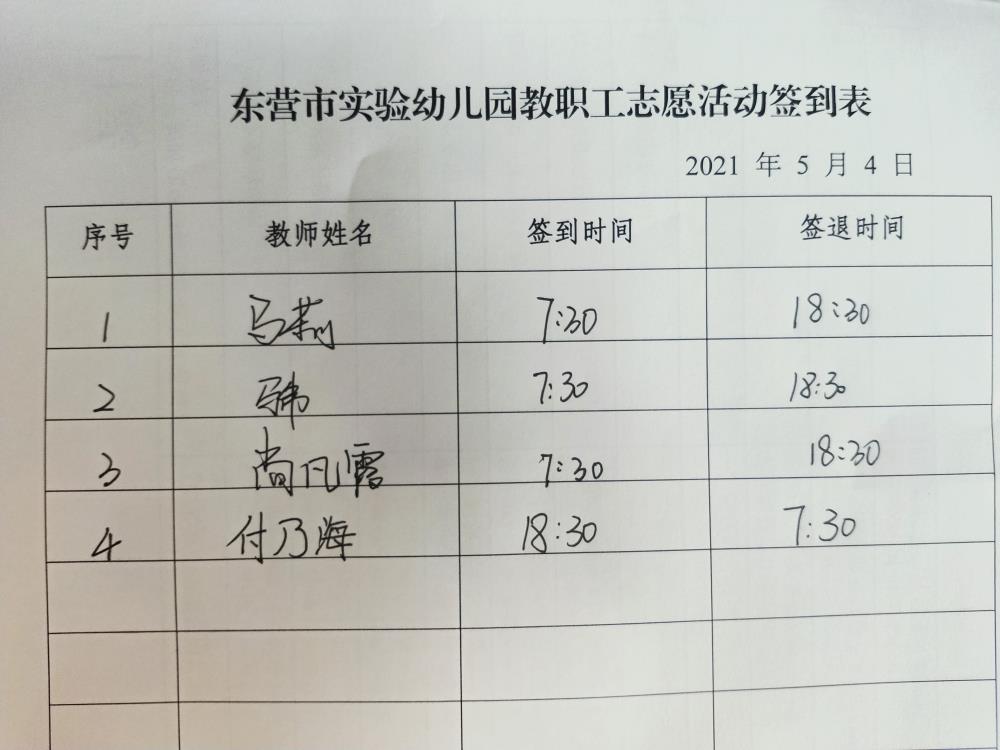 东营市实验幼儿园教职工志愿活动签到表
2021 年 5 月 4 日
序号 教师姓名 签到时间 签退时间
1 马莉 7:30 18:30
2 7:30 18:30
3 尚凡露 7:30 18:30
4 付乃海 18:30 7:30